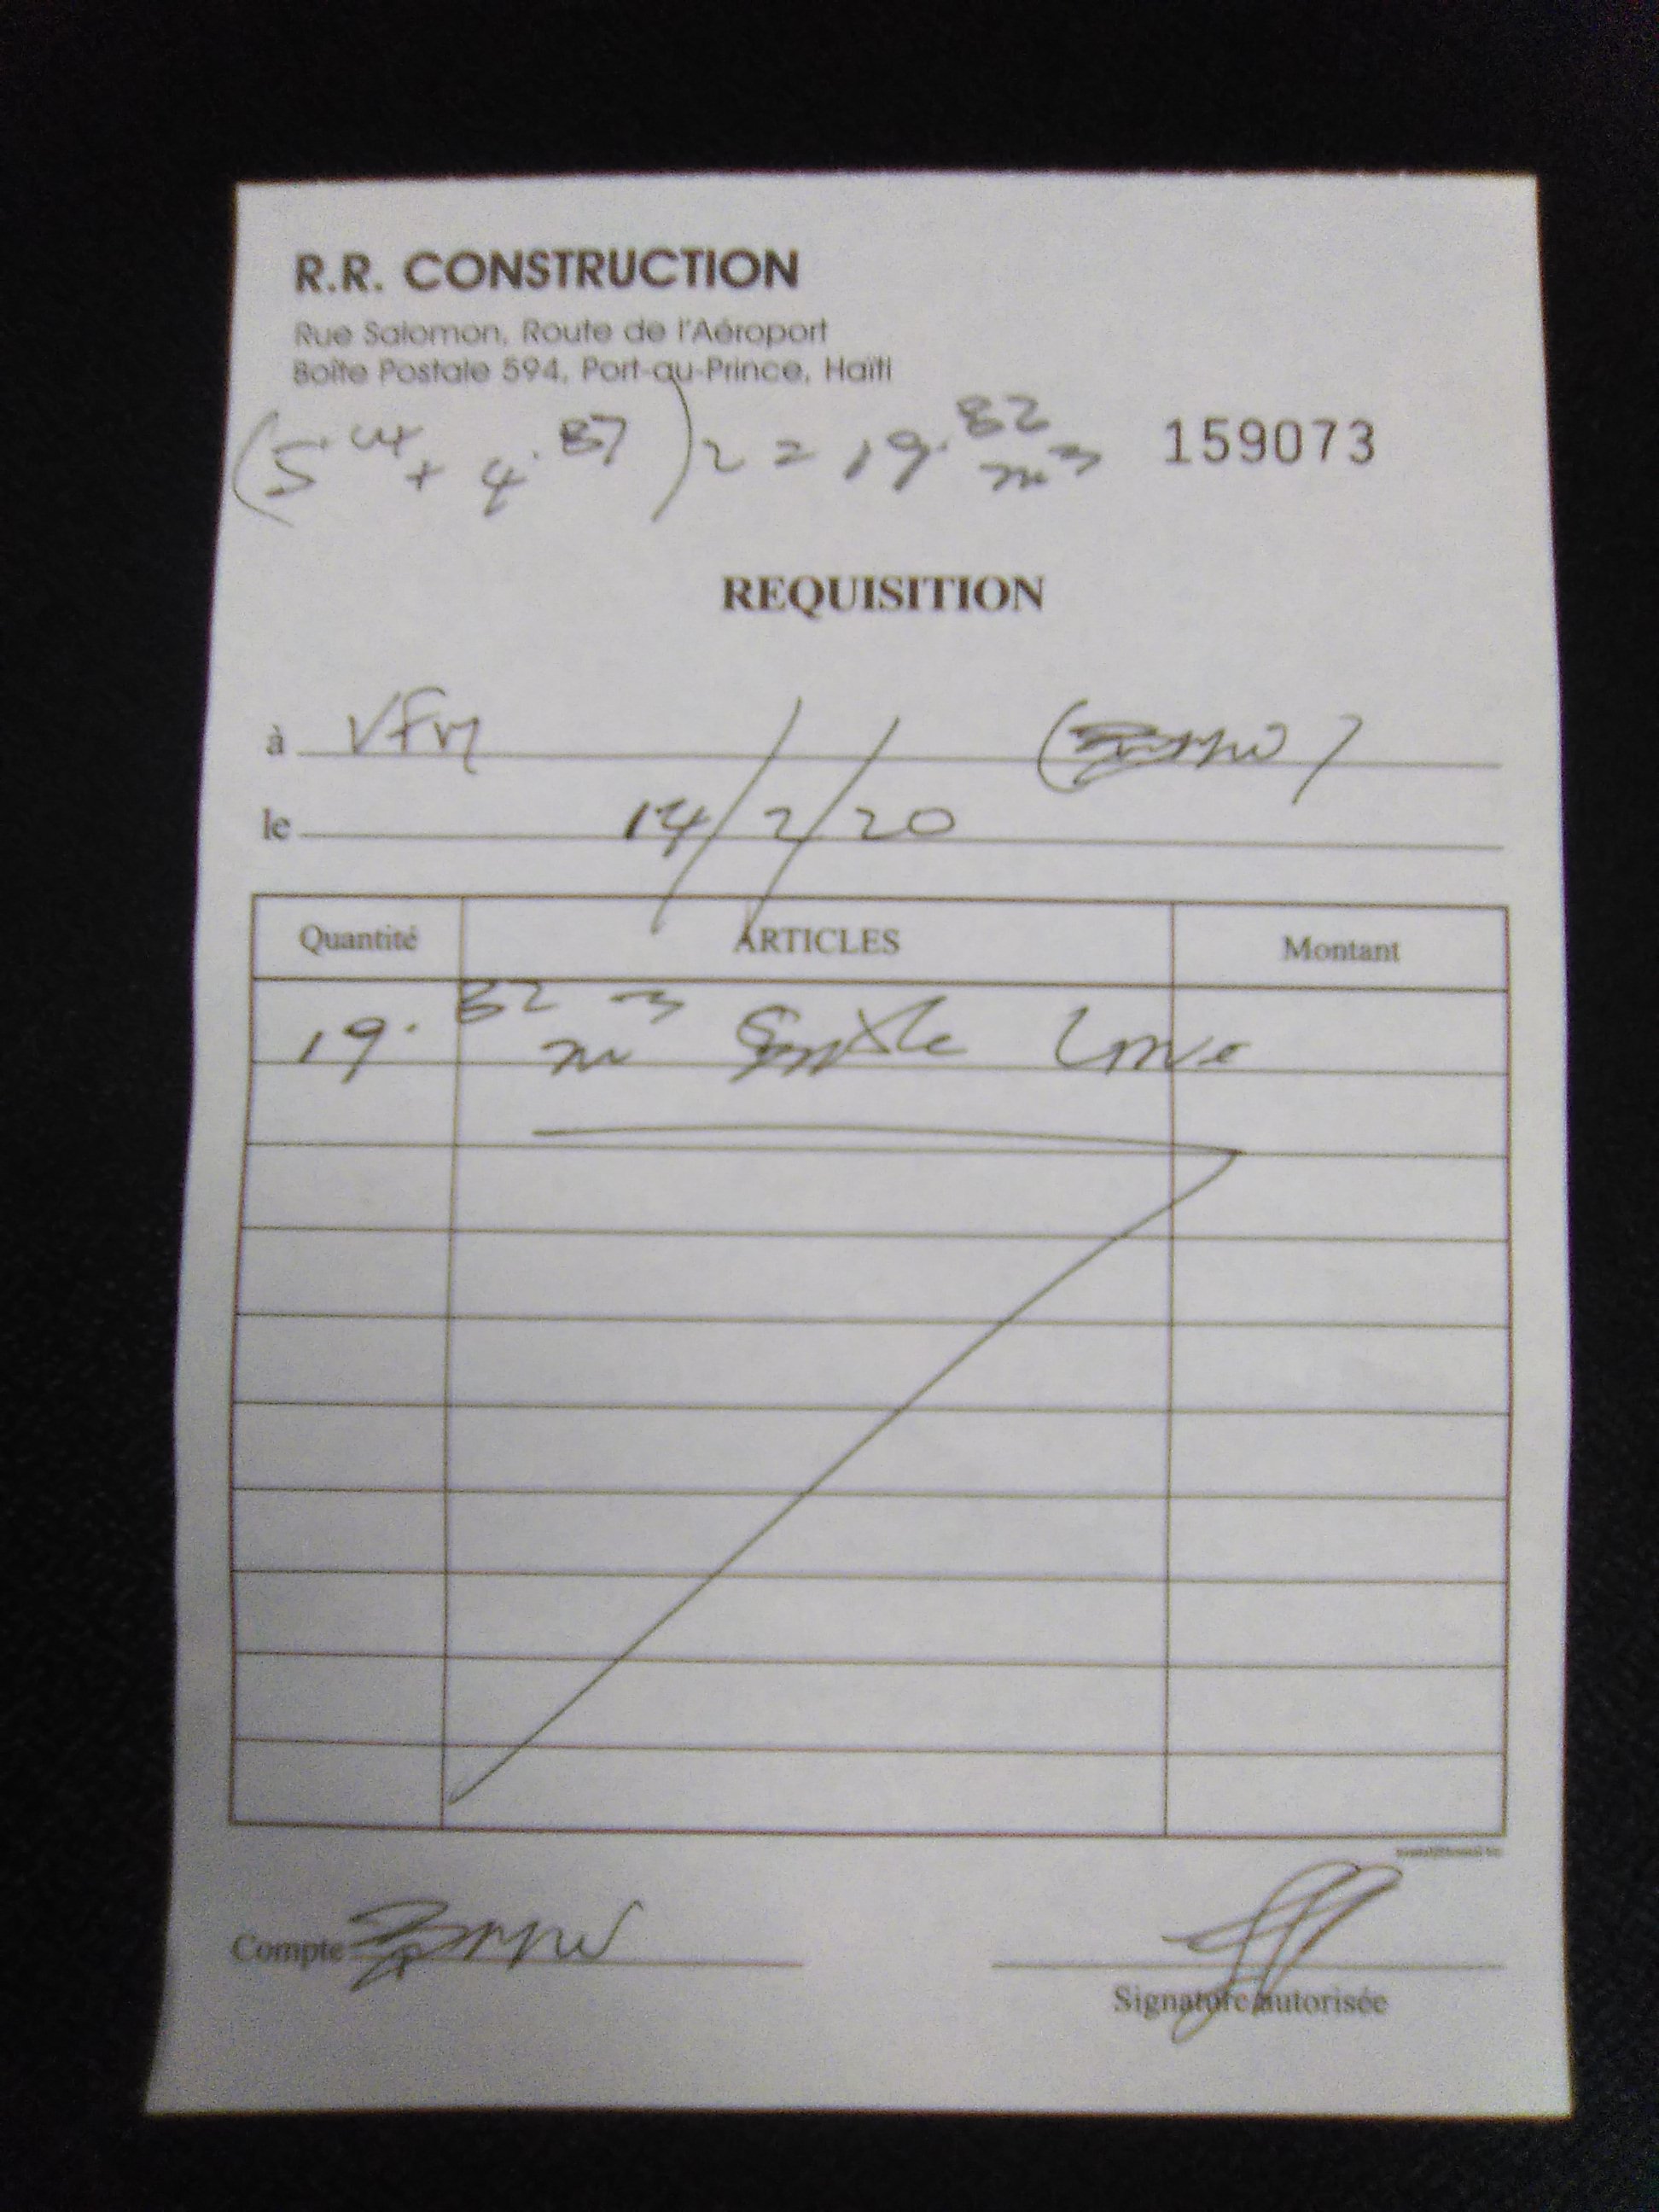 R.R. CONSTRUCTION
Rue Salomon, Route de l'Aéroport
Boîte Postale 594, Port-au-Prince, Haïti
(5.04 + 4.87) 2 = 19.82 m3
159073
REQUISITION
à VFM
le 14/2/20
Quantité ARTICLES Montant
19.82 m3 Sable
Compte
Signature autorisée